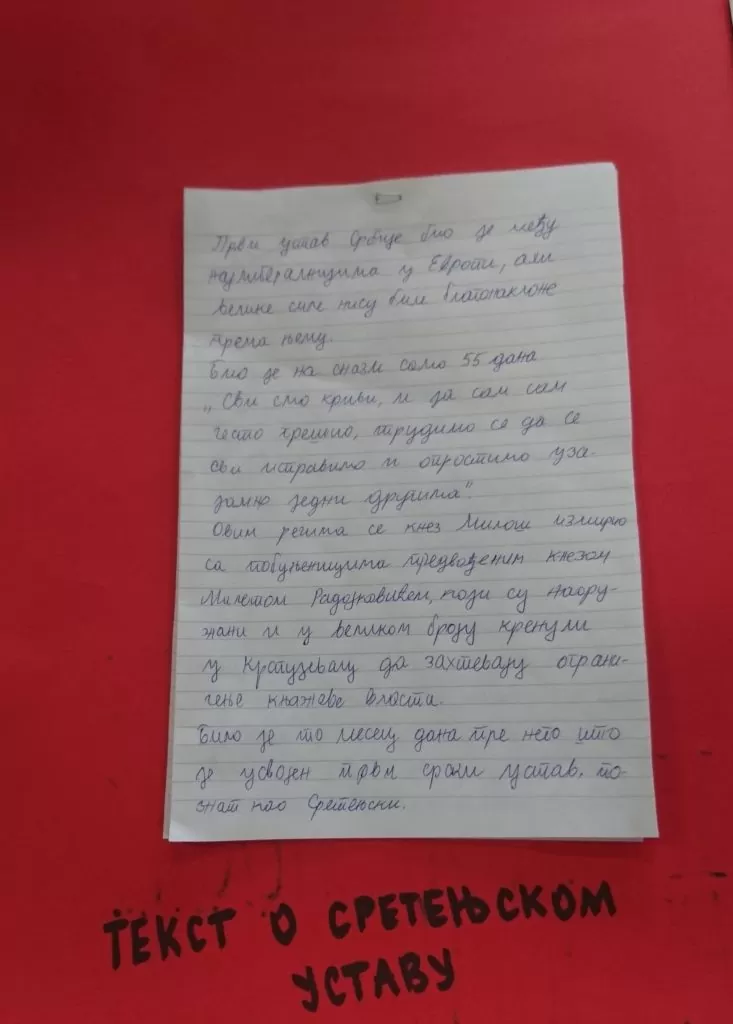 Први устав Србије био је међу
најлибералнијима у Европи, али
велике силе нису биле благонаклоне
према њему.
Био је на снази само 55 дана
„Сви смо криви, и ја сам сам
често грешио, трудимо се да се
сви исправимо и опростимо уза-
јамно једни другима".
Овим речима се кнез Милош измирио
са побуњеницима предвођеним кнезом
Милетом Радојковићем, који су наору-
жани и у великом броју кренули
у Крагујевац да захтевају ограни-
чење кнежеве власти.
Било је то месец дана пре него што
је усвојен први српски устав, по-
знат као Сретењски.
ТЕКСТ О СРЕТЕЊСКОМ
УСТАВУ